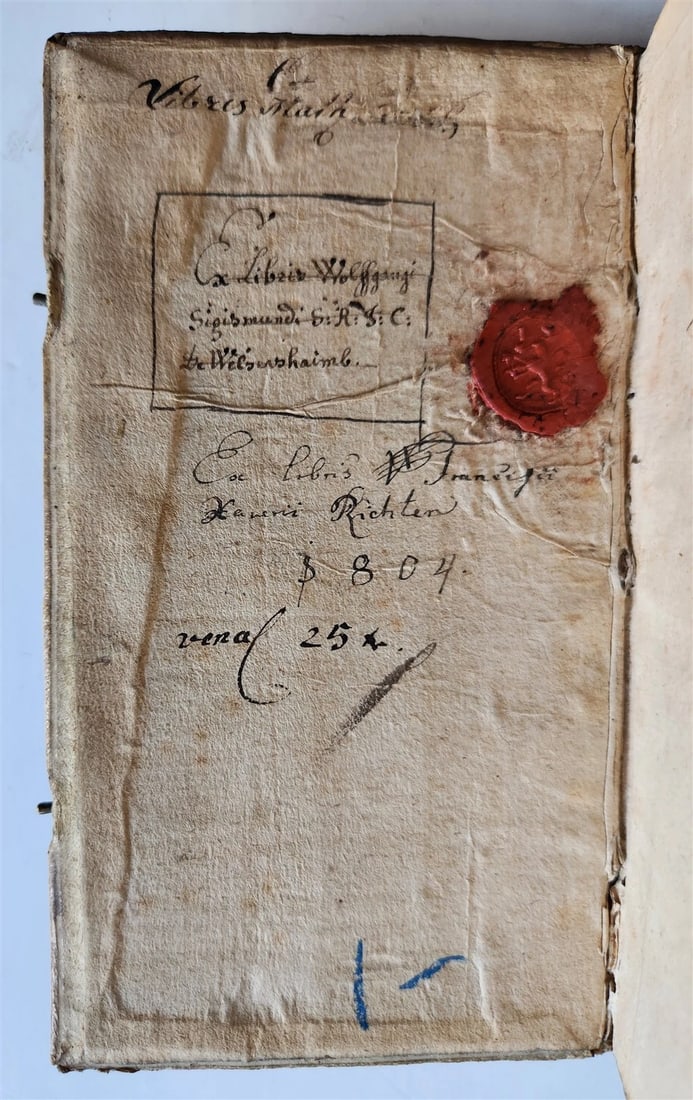 Ex
Libris Math
Ex Libris Wolffgangi
Sigismundi S: R: I: C:
de Wilsershaimb.
Ex libris Francisii
Xaverii Richter
1804.
venal 25 x.
1 -